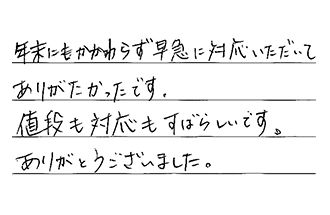 年末にもかかわらず早急に対応いただいて
ありがたかったです.
値段も対応もすばらしいです。
ありがとうございました。